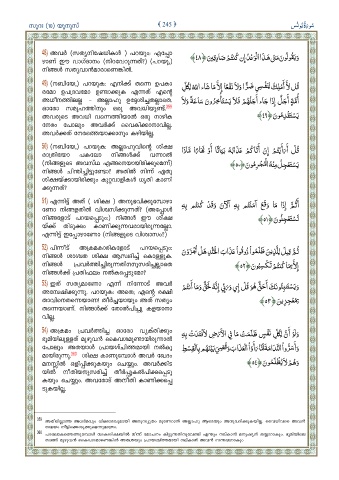 സൂറ (10) യൂനുസ് ﴾ 245 ﴿ سورة يونس
48) അവർ (സത്യനിഷേധികൾ) പറയും: എപ്പോ
ഴാണ് ഈ വാഗ്ദാനം (നിറവേറുന്നത്?) (പറയൂ,)
നിങ്ങൾ സത്യവാൻമാരാണെങ്കിൽ.
وَيَقُولُونَ مَتَىٰ هَٰذَا ٱلْوَعْدُ إِن كُنتُمْ صَٰدِقِينَ ﴿٤٨﴾
49) (നബിയേ,) പറയുക: എനിക്ക് തന്നെ ഉപകാ
രമോ ഉപദ്രവമോ ഉണ്ടാക്കുക എന്നത് എന്റെ
അധീനത്തിലല്ല - അല്ലാഹു ഉദ്ദേശിച്ചതല്ലാതെ.
ഓരോ സമൂഹത്തിനും ഒരു അവധിയുണ്ട്.
അവരുടെ അവധി വന്നെത്തിയാൽ ഒരു നാഴിക
നേരം പോലും അവർക്ക് വൈകിക്കാനാവില്ല.
അവർക്കത് നേരത്തെയാക്കാനും കഴിയില്ല.
قُل لَّآ أَمْلِكُ لِنَفْسِى ضَرًّا وَلَا نَفْعًا إِلَّا مَا شَآءَ ٱللَّهُ لِكُلِّ
أُمَّةٍ أَجَلٌ إِذَا جَآءَ أَجَلُهُمْ فَلَا يَسْتَـْٔخِرُونَ سَاعَةً وَلَا
يَسْتَقْدِمُونَ ﴿٤٩﴾
50) (നബിയേ,) പറയുക: അല്ലാഹുവിന്റെ ശിക്ഷ
രാത്രിയോ പകലോ നിങ്ങൾക്ക് വന്നാൽ
(നിങ്ങളുടെ അവസ്ഥ എങ്ങനെയായിരിക്കുമെന്ന്)
നിങ്ങൾ ചിന്തിച്ചിട്ടുണ്ടോ? അതിൽ നിന്ന് ഏതു
ശിക്ഷയ്ക്കായിരിക്കും കുറ്റവാളികൾ ധൃതി കാണി
ക്കുന്നത്?
قُلْ أَرَءَيْتُمْ إِنْ أَتَىٰكُمْ عَذَابُهُۥ بَيَٰتًا أَوْ نَهَارًا مَّاذَا
يَسْتَعْجِلُ مِنْهُ ٱلْمُجْرِمُونَ ﴿٥٠﴾
51) എന്നിട്ട് അത് (ശിക്ഷ) അനുഭവിക്കുമ്പോഴാ
ണോ നിങ്ങളതിൽ വിശ്വസിക്കുന്നത്? (അപ്പോൾ
നിങ്ങളോട് പറയപ്പെടും:) നിങ്ങൾ ഈ ശിക്ഷ
യ്ക്ക് തിടുക്കം കാണിക്കുന്നവരായിരുന്നല്ലോ.
എന്നിട്ട് ഇപ്പോഴാണോ (നിങ്ങളുടെ വിശ്വാസം?)
أَثُمَّ إِذَا مَا وَقَعَ ءَامَنتُم بِهِۦٓ ءَآلْـَٰٔنَ وَقَدْ كُنتُم بِهِۦ
تَسْتَعْجِلُونَ ﴿٥١﴾
52) പിന്നീട് അക്രമകാരികളോട് പറയപ്പെടും:
നിങ്ങൾ ശാശ്വത ശിക്ഷ ആസ്വദിച്ച് കൊള്ളുക.
നിങ്ങൾ പ്രവർത്തിച്ചിരുന്നതിനനുസരിച്ചല്ലാതെ
നിങ്ങൾക്ക് പ്രതിഫലം നൽകപ്പെടുമോ?
ثُمَّ قِيلَ لِلَّذِينَ ظَلَمُوا۟ ذُوقُوا۟ عَذَابَ ٱلْخُلْدِ هَلْ تُجْزَوْنَ
إِلَّا بِمَا كُنتُمْ تَكْسِبُونَ ﴿٥٢﴾
53) ഇത് സത്യമാണോ എന്ന് നിന്നോട് അവർ
അന്വേഷിക്കുന്നു. പറയുക: അതെ; എന്റെ രക്ഷി
താവിനെത്തന്നെയാണ! തീർച്ചയായും അത് സത്യം
തന്നെയാണ്. നിങ്ങൾക്ക് തോൽപിച്ചു കളയാനാ
വില്ല.
وَيَسْتَنۢبِـُٔونَكَ أَحَقٌّ هُوَ قُلْ إِى وَرَبِّىٓ إِنَّهُۥ لَحَقٌّ وَمَآ أَنتُم
بِمُعْجِزِينَ ﴿٥٣﴾
54) അക്രമം പ്രവർത്തിച്ച ഓരോ വ്യക്തിക്കും
ഭൂമിയിലുള്ളത് മുഴുവൻ കൈവശമുണ്ടായിരുന്നാൽ
പോലും അതയാൾ പ്രായശ്ചിത്തമായി നൽകു
മായിരുന്നു. ശിക്ഷ കാണുമ്പോൾ അവർ ഖേദം
മനസ്സിൽ ഒളിപ്പിക്കുകയും ചെയ്യും. അവർക്കിട
യിൽ നീതിയനുസരിച്ച് തീർപ്പുകൽപിക്കപ്പെടു
കയും ചെയ്യും. അവരോട് അനീതി കാണിക്കപ്പെ
ടുകയില്ല.
وَلَوْ أَنَّ لِكُلِّ نَفْسٍ ظَلَمَتْ مَا فِى ٱلْأَرْضِ لَٱفْتَدَتْ بِهِۦ
وَأَسَرُّوا۟ ٱلنَّدَامَةَ لَمَّا رَأَوُا۟ ٱلْعَذَابَ وَقُضِىَ بَيْنَهُم بِٱلْقِسْطِ
وَهُمْ لَا يُظْلَمُونَ ﴿٥٤﴾